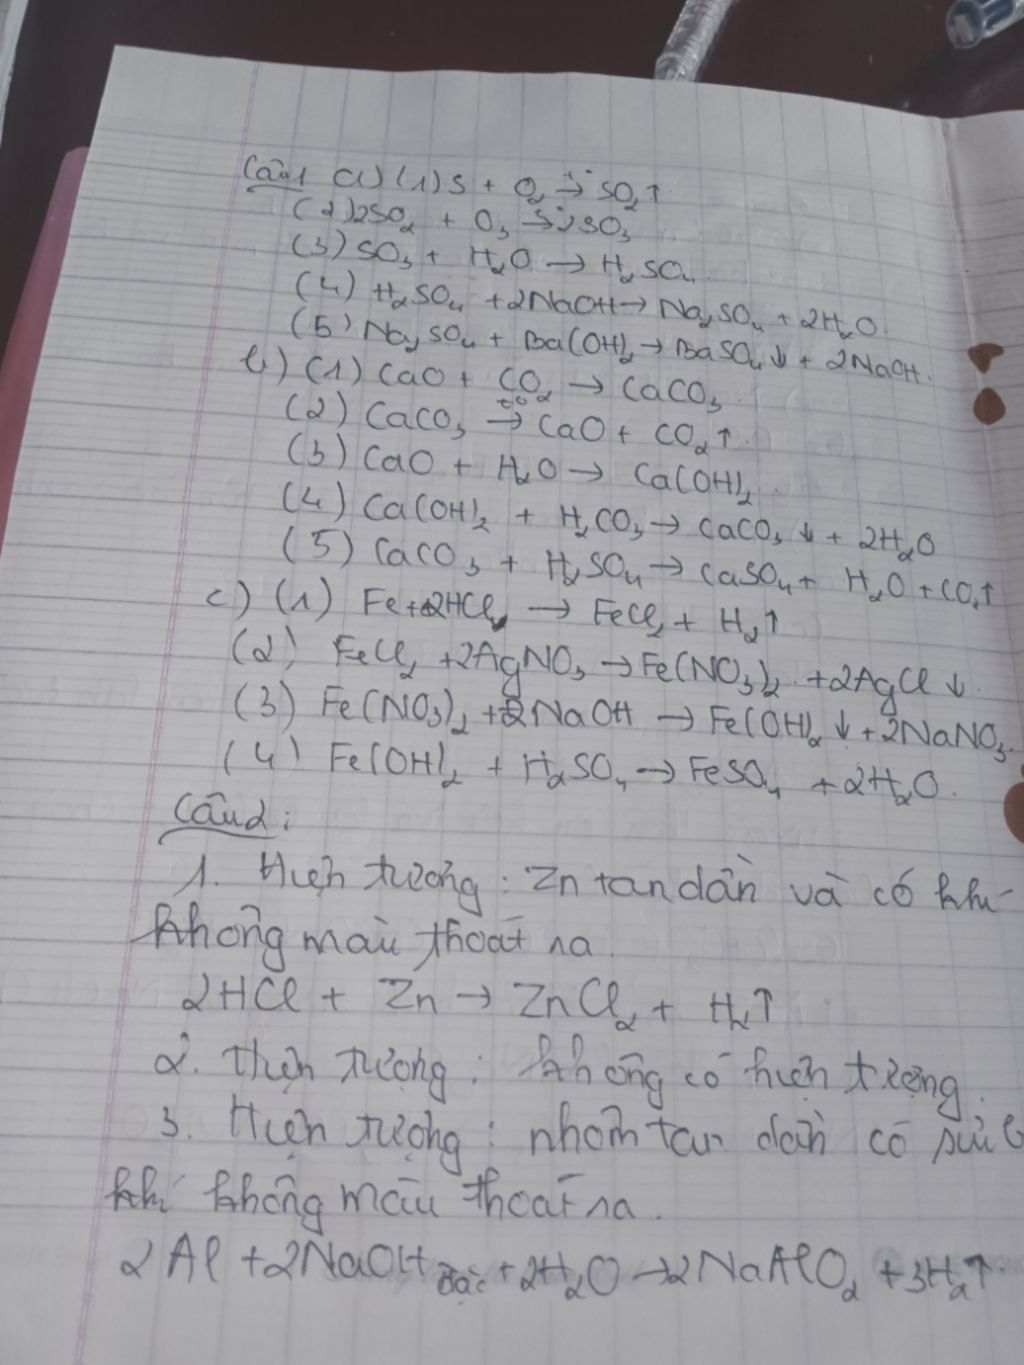 Câu1 a) (1) S + O₂ → SO₂↑
(2) 2SO₂ + O₃ → SO₃
(3) SO₃ + H₂O → H₂SO₄
(4) H₂SO₄ + 2NaOH → Na₂SO₄ + 2H₂O.
(5) Na₂SO₄ + Ba(OH)₂ → BaSO₄↓ + 2NaOH.
b) (1) CaO + CO₂ → CaCO₃
(2) CaCO₃ →(t⁰) CaO + CO₂↑.
(3) CaO + H₂O → Ca(OH)₂.
(4) Ca(OH)₂ + H₂CO₃ → CaCO₃↓ + 2H₂O
(5) CaCO₃ + H₂SO₄ → CaSO₄ + H₂O + CO₂↑
c) (1) Fe + 2HCl → FeCl₂ + H₂↑
(2) FeCl₂ + 2AgNO₃ → Fe(NO₃)₂ + 2AgCl↓.
(3) Fe(NO₃)₂ + 2NaOH → Fe(OH)₂↓ + 2NaNO₃.
(4) Fe(OH)₂ + H₂SO₄ → FeSO₄ + 2H₂O.
Câu2:
1. Hiện tượng: Zn tan dần và có khí
không màu thoát ra.
2HCl + Zn → ZnCl₂ + H₂↑
2. Hiện tượng: không có hiện tượng.
3. Hiện tượng: nhôm tan dần có sủi
khí không màu thoát ra.
2Al + 2NaOH đặc + 2H₂O → 2NaAlO₂ + 3H₂↑.